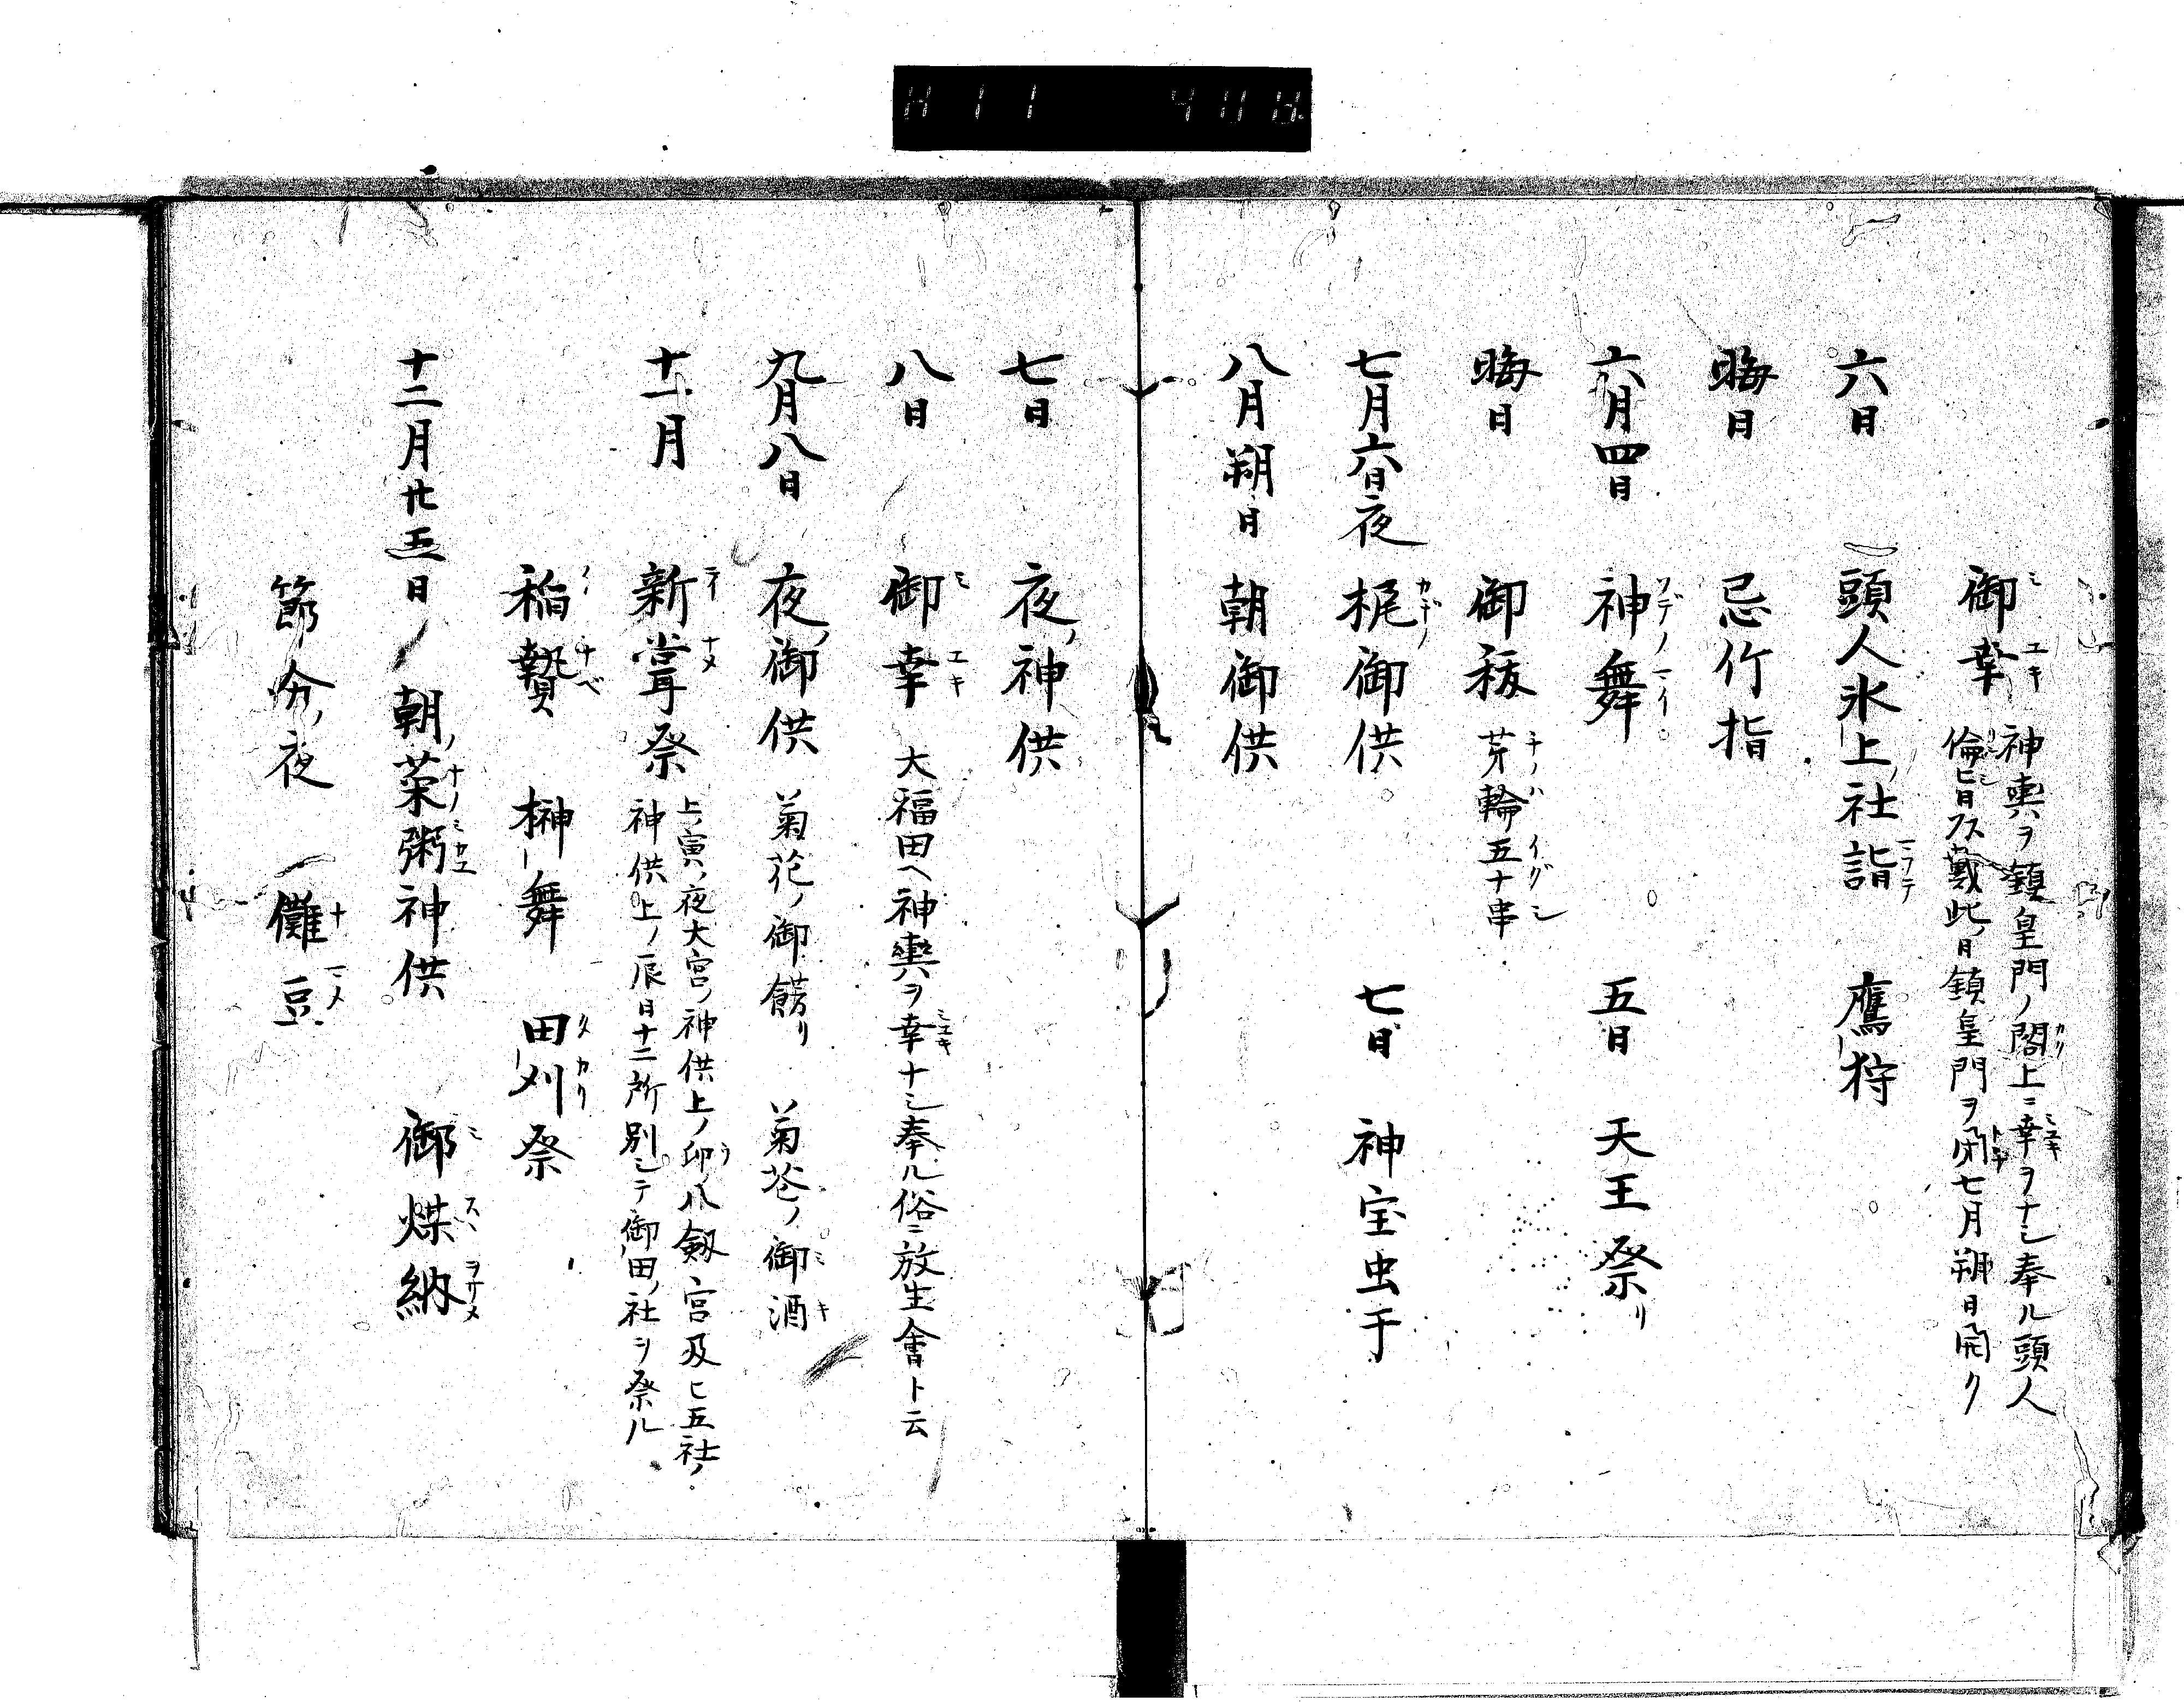 御幸 神輿ヲ鎮皇門ノ閣上ニ幸ヲナシ奉ル頭人
倫旨ヲ戴此ノ日鎮皇門ヲ閉七月朔日開ク
六日 頭人氷上ノ社詣 鷹狩
晦日 忌竹指
六月四日 神舞 五日 天王祭リ
晦日 御祓 芽輪五十串
七月六日夜 梶御供 七日 神宝虫干
八月朔日 朝御供
七日 夜ノ神供
八日 御幸 大福田ヘ神輿ヲ幸ナシ奉ル俗ニ放生會ト云
九月八日 夜ノ御供 菊花ノ御餝リ 菊花ノ御酒
十一月 新嘗祭 上ノ寅ノ夜大宮ノ神供上ノ卯八劔宮及ヒ五社ノ
神供上ノ辰日十二所別シテ御田ノ社ヲ祭ル
稲贄 榊舞 田刈祭
十二月廿五日ノ朝ノ菜粥神供 御煤納
節分ノ夜 儺豆